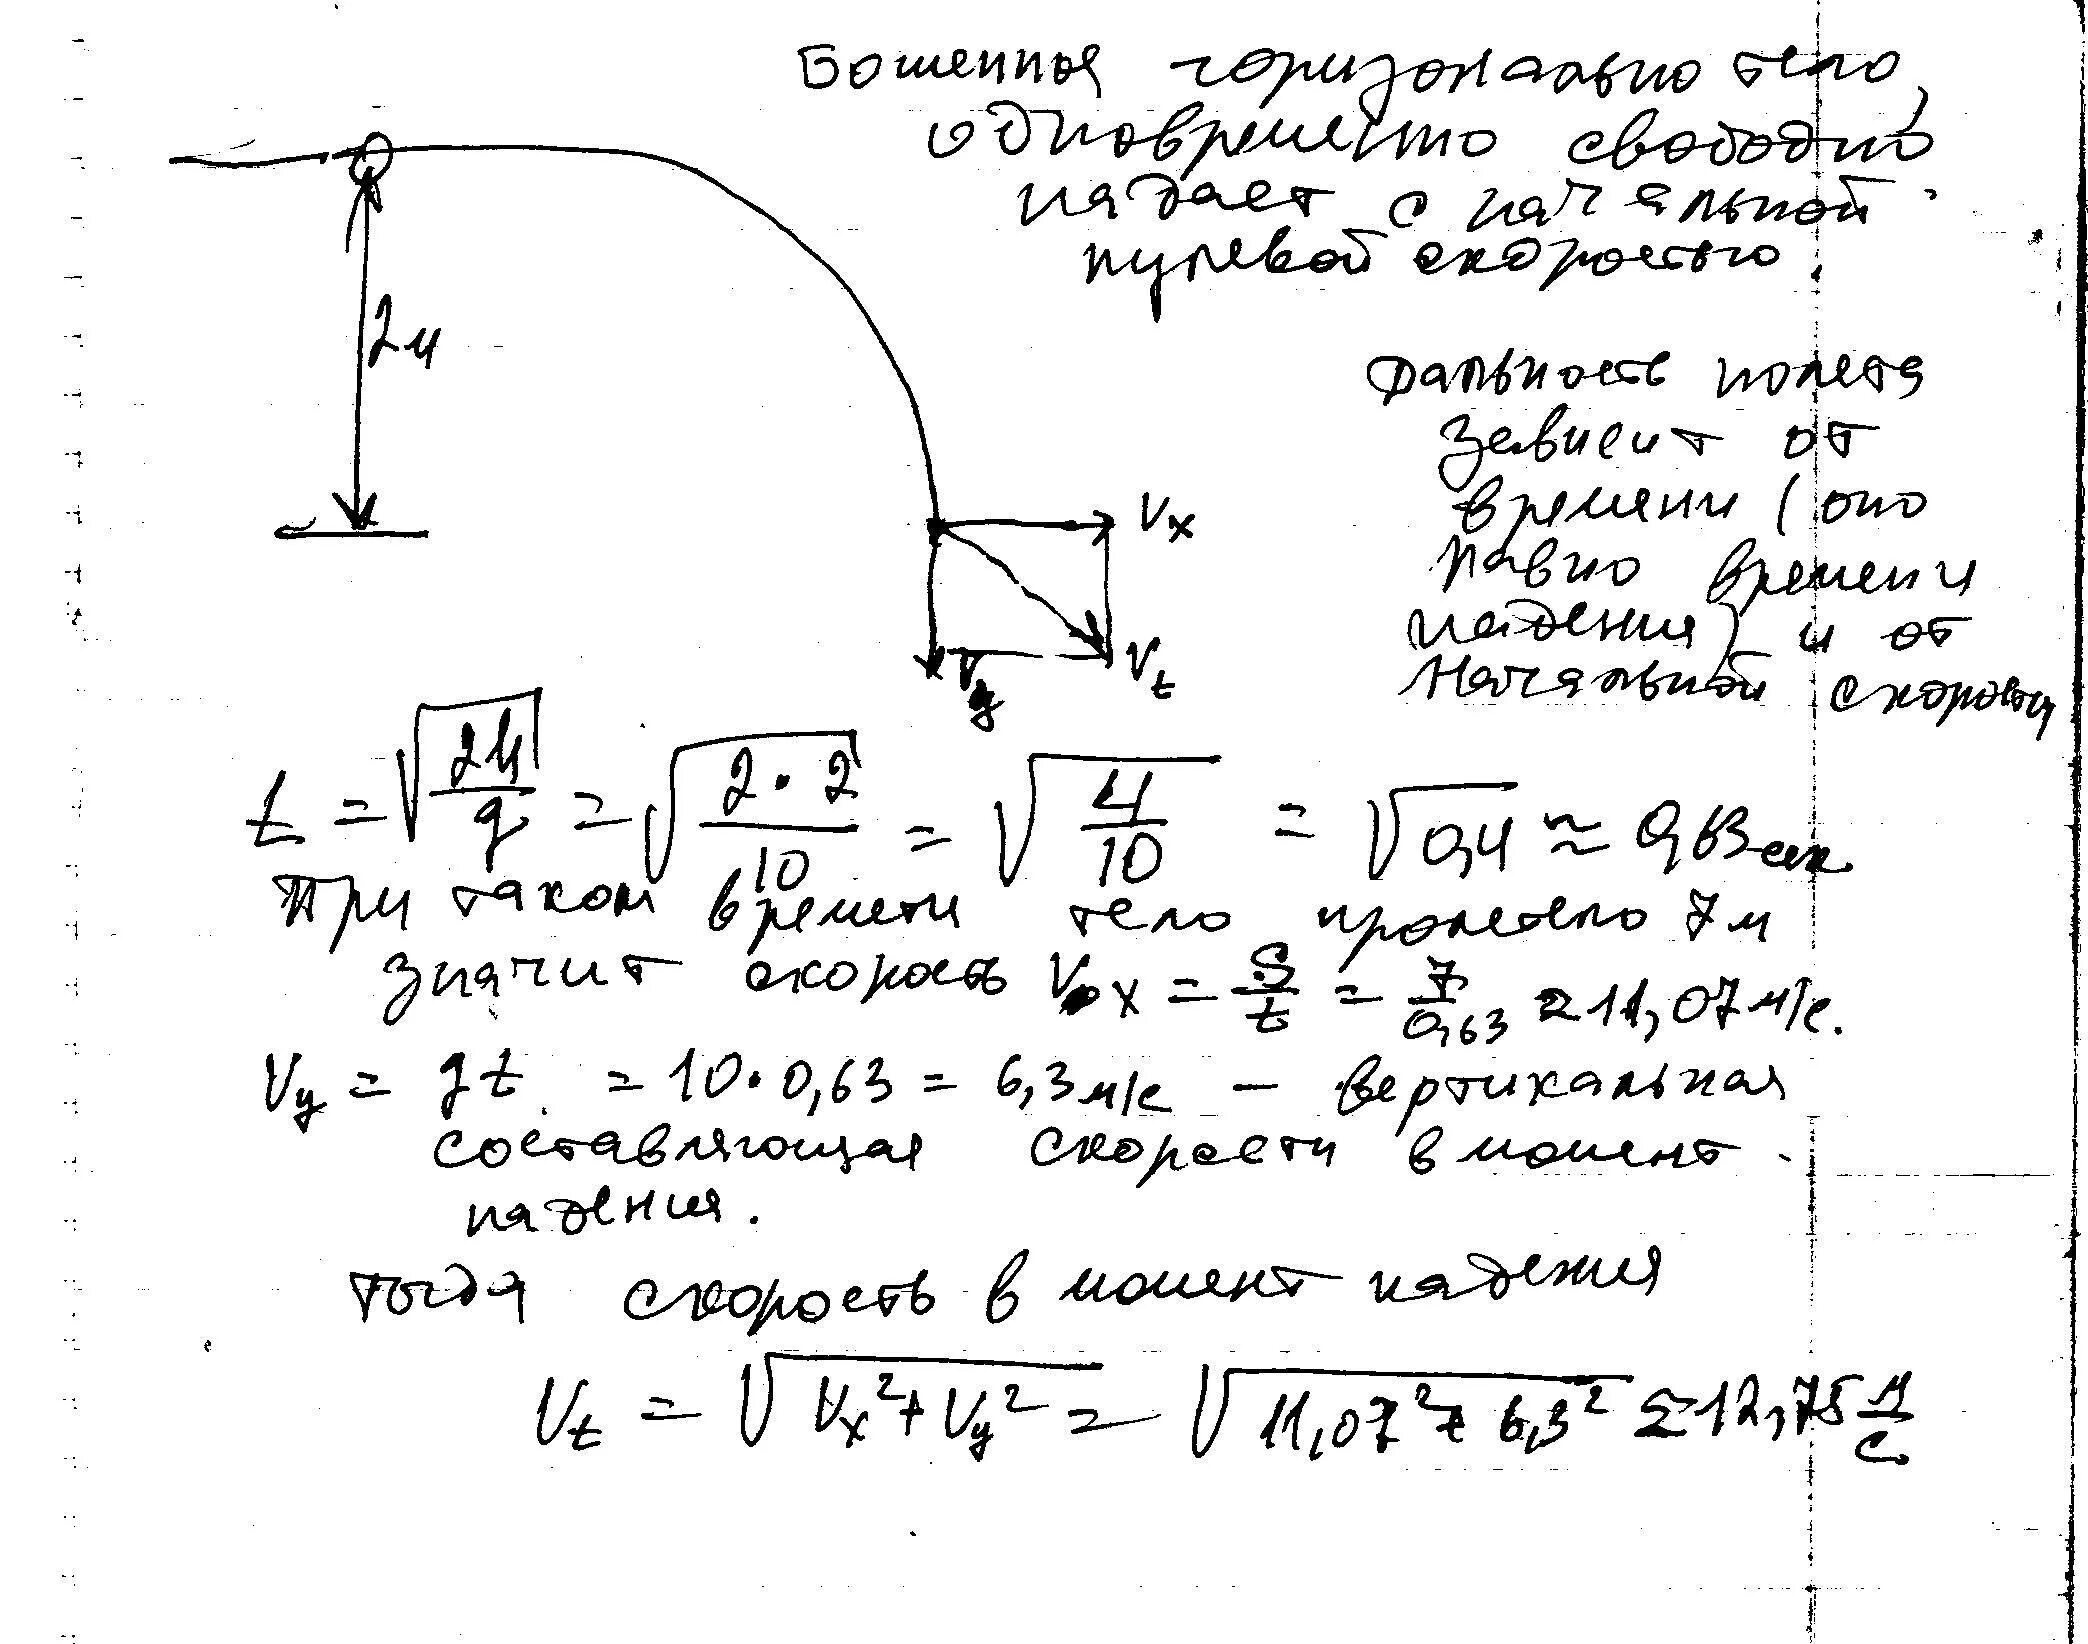 Брошенное горизонтально тело,
одновременно свободно
падает с начальной
нулевой скоростью.
2м
Дальность полета
зависит от
времени (оно
равно времени
падения) и от
начальной скорости
Vx
Vy
Vt
t = √(2h/g) = √(2·2/10) = √(4/10) = √0,4 ≈ 0,63 сек
При таком времени тело пролетело 7 м
значит скорость V₀x = S/t = 7/0,63 ≈ 11,07 м/с.
Vy = gt = 10·0,63 = 6,3 м/с – вертикальная
составляющая скорости в момент
падения.
тогда скорость в момент падения
Vt = √(Vx² + Vy²) = √(11,07² + 6,3²) ≈ 12,75 м/с